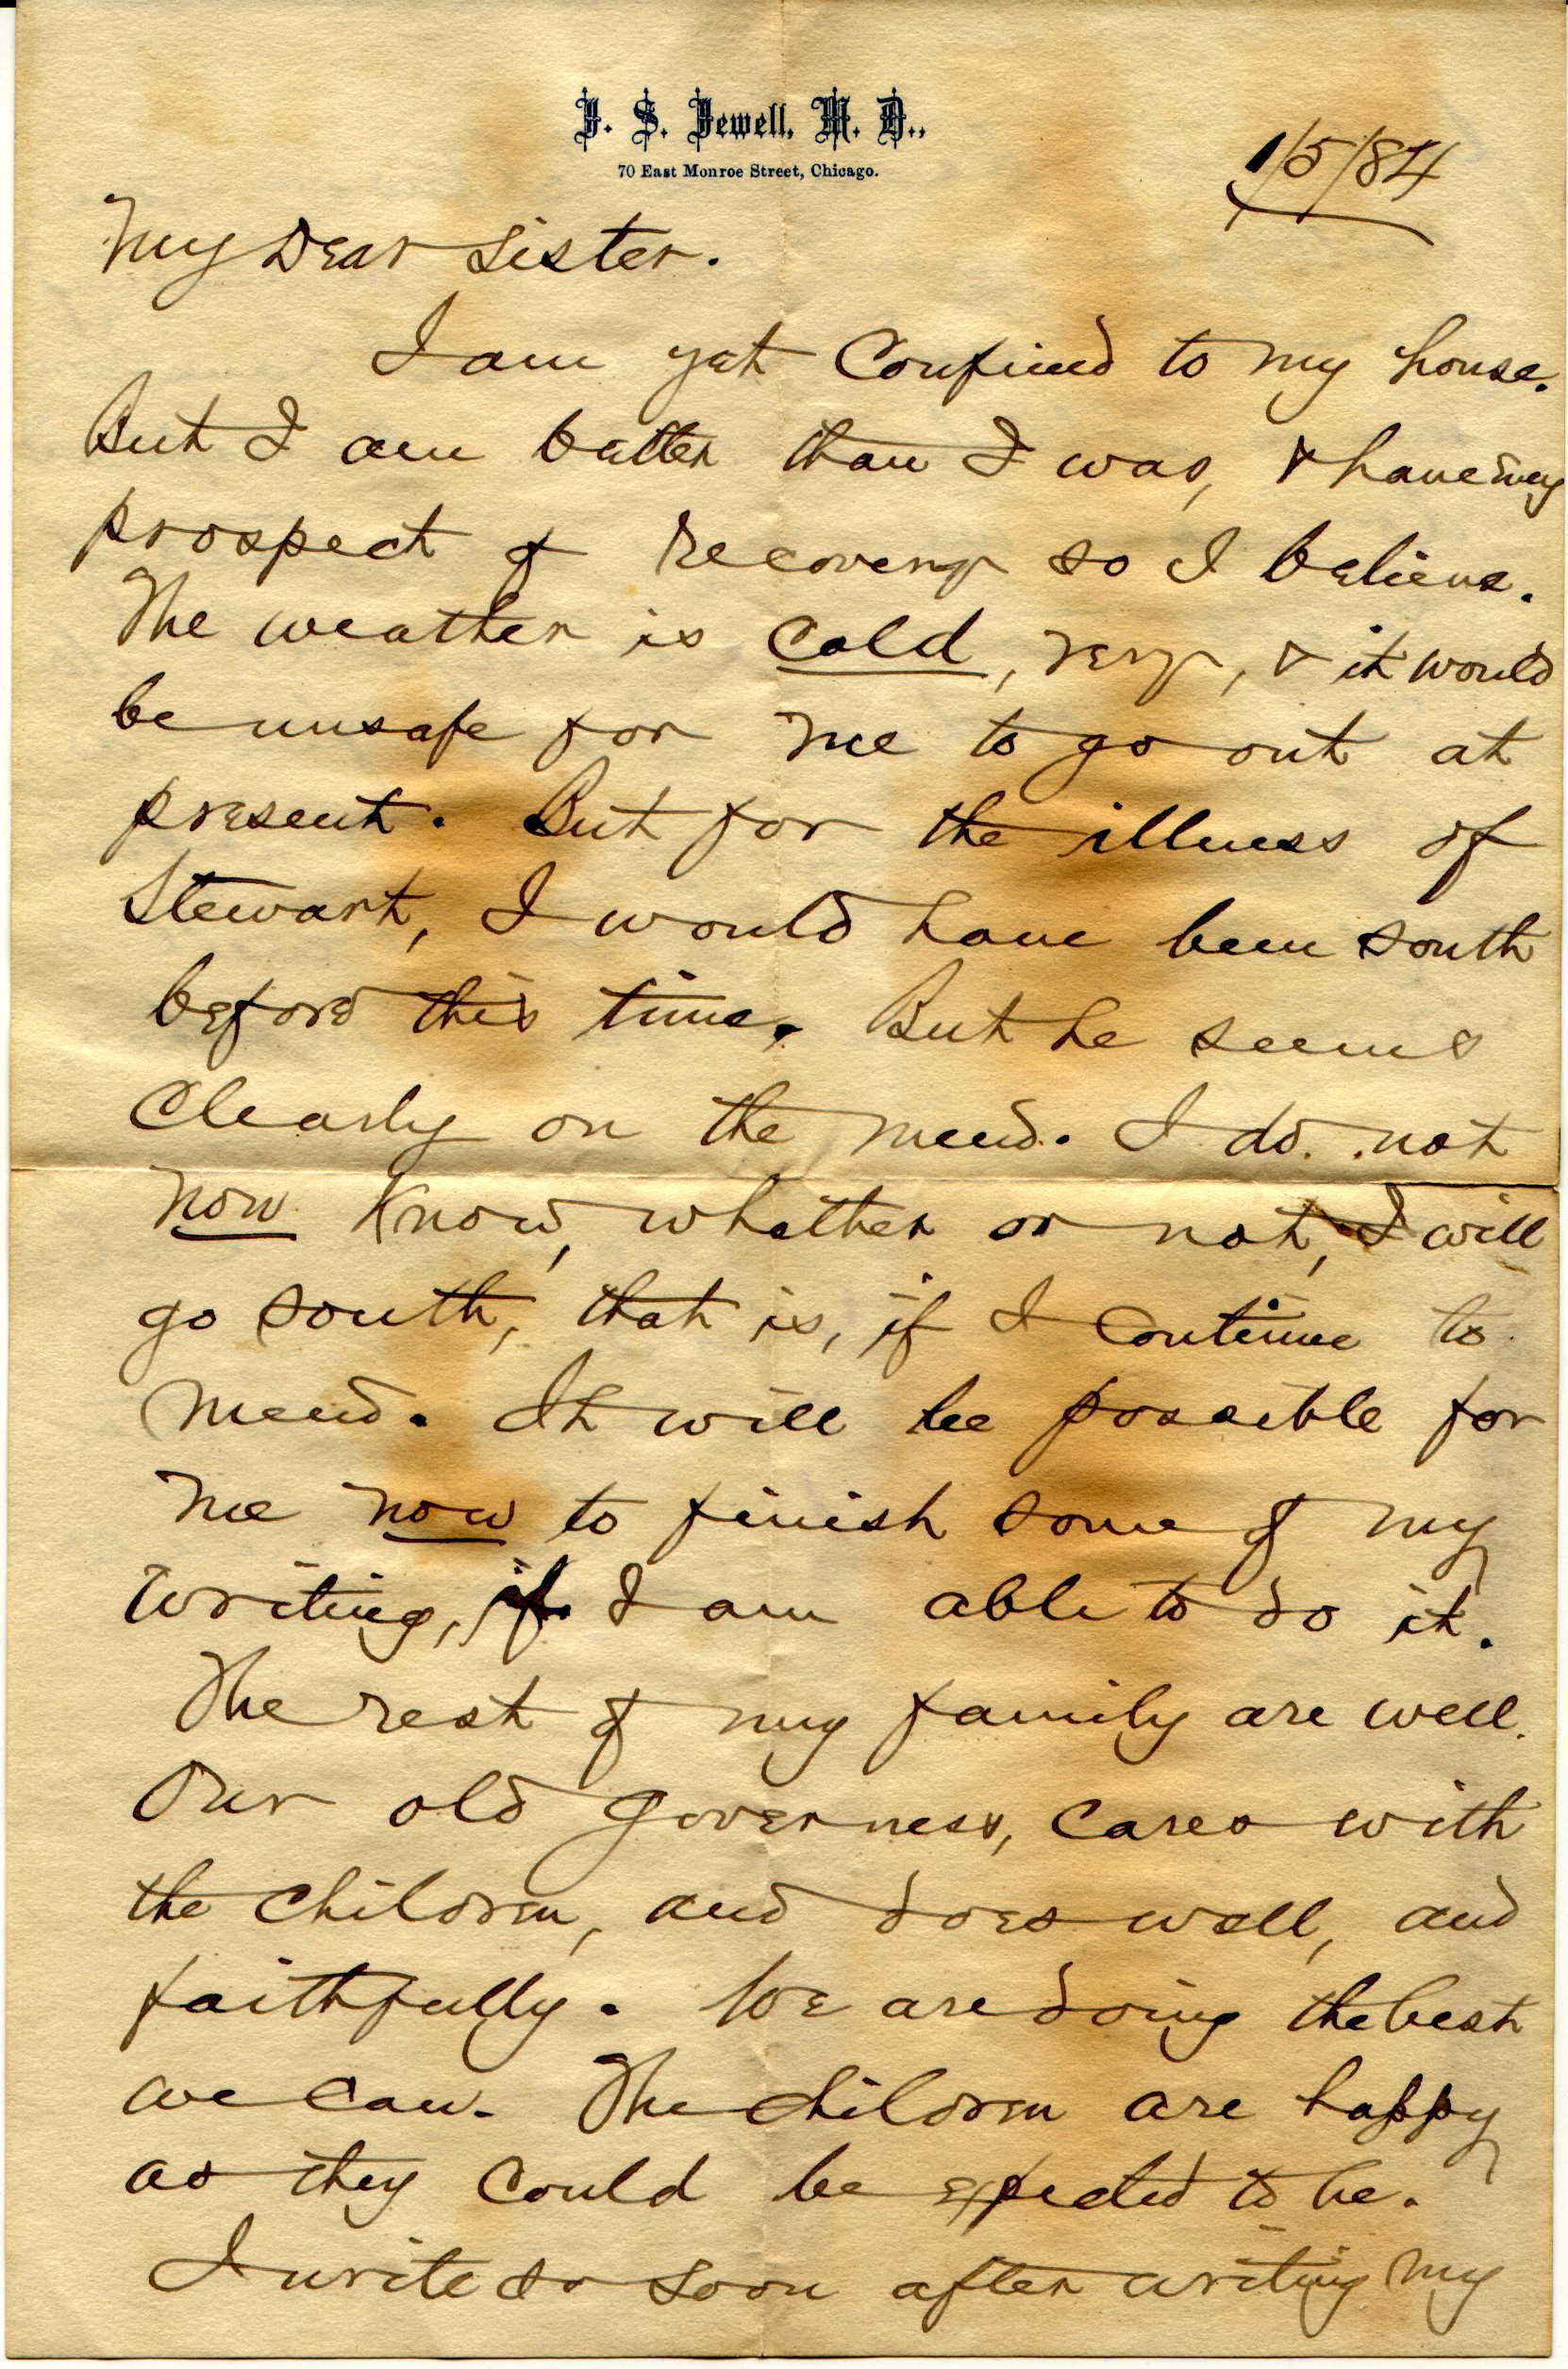 J. S. Jewell, M. D.,
70 East Monroe Street, Chicago.
1/5/84
My Dear Sister.
I am yet Confined to my house.
But I am better than I was, & have every
prospect of recovery so I believe.
The weather is cold, very, & it would
be unsafe for me to go out at
present. But for the illness of
Stewart, I would have been south
before this time. But he seems
Clearly on the mend. I do not
now know, whether or not, I will
go south, that is, if I continue to
mend. It will be possible for
me now to finish some of my
writing, if I am able to do it.
The rest of my family are well.
Our old governess, cares with
the children, and does well, and
faithfully. We are doing the best
we can. The children are happy
as they could be expected to be.
I write so soon after writing my